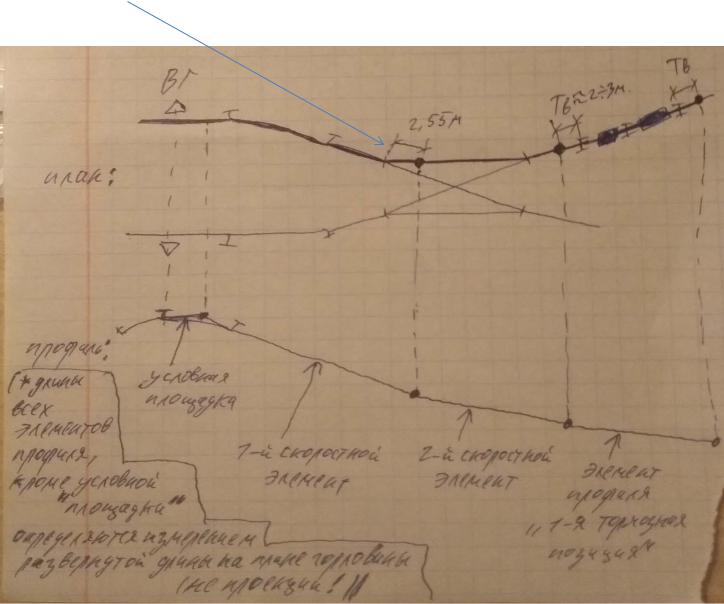 ВГ
Тв
2,55м
Тв≈2÷3м.
план:
профиль:
условная
площадка
1-й скоростной
элемент
2-й скоростной
элемент
элемент
профиля
„1-я тормозная
позиция"
(* длины
всех
элементов
профиля,
кроме условной
"площадки"
определяются измерением
развернутой длины на плане горловины
(не проекции!))